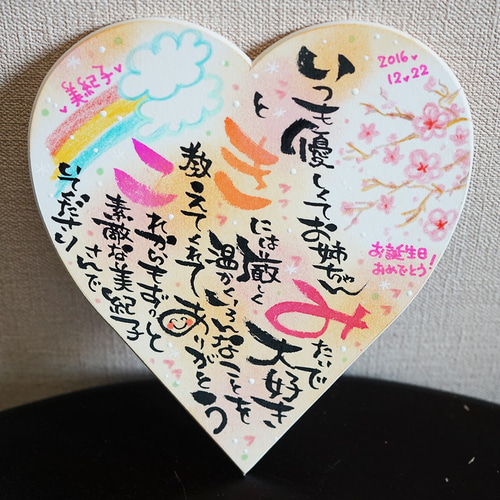 美紀子
2016
12 22
いつも優しくてお姉ちゃん
みたいで大好き
と
きには厳しく
温かくいろんなことを
教えてくれてありがとう
これからもずーっと
素敵な美紀子
さんで
いてださい
お誕生日
おめでとう!